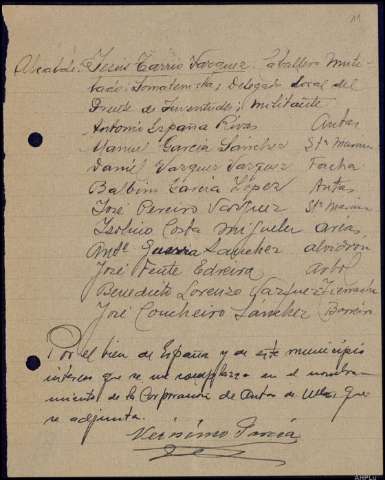 Alcalde: Jesús Carrio Vazquez. Caballero Muti-
lado; Somatenista; Delegado Local del
Frente de Juventudes; militante
Antonio España Rivas Antas
Manuel Garcia Sanchez Stª Marina
Daniel Vazquez Vazquez Facha
Balbino Garcia López Antas
José Pereiro Vazquez Stª Marina
Isolino Costa Miguelez Areas
Andª Guerra Sanchez Alvidrón
José Fente Edreira Arbol
Benedicto Lorenzo Vazquez
José Concheiro Sánchez
Por el bien de España y de este municipio
intereso que se me complazca en el nombra-
miento de la Corporación de Antas de Ulla que
se adjunta.
Verisimo García
AHPLu